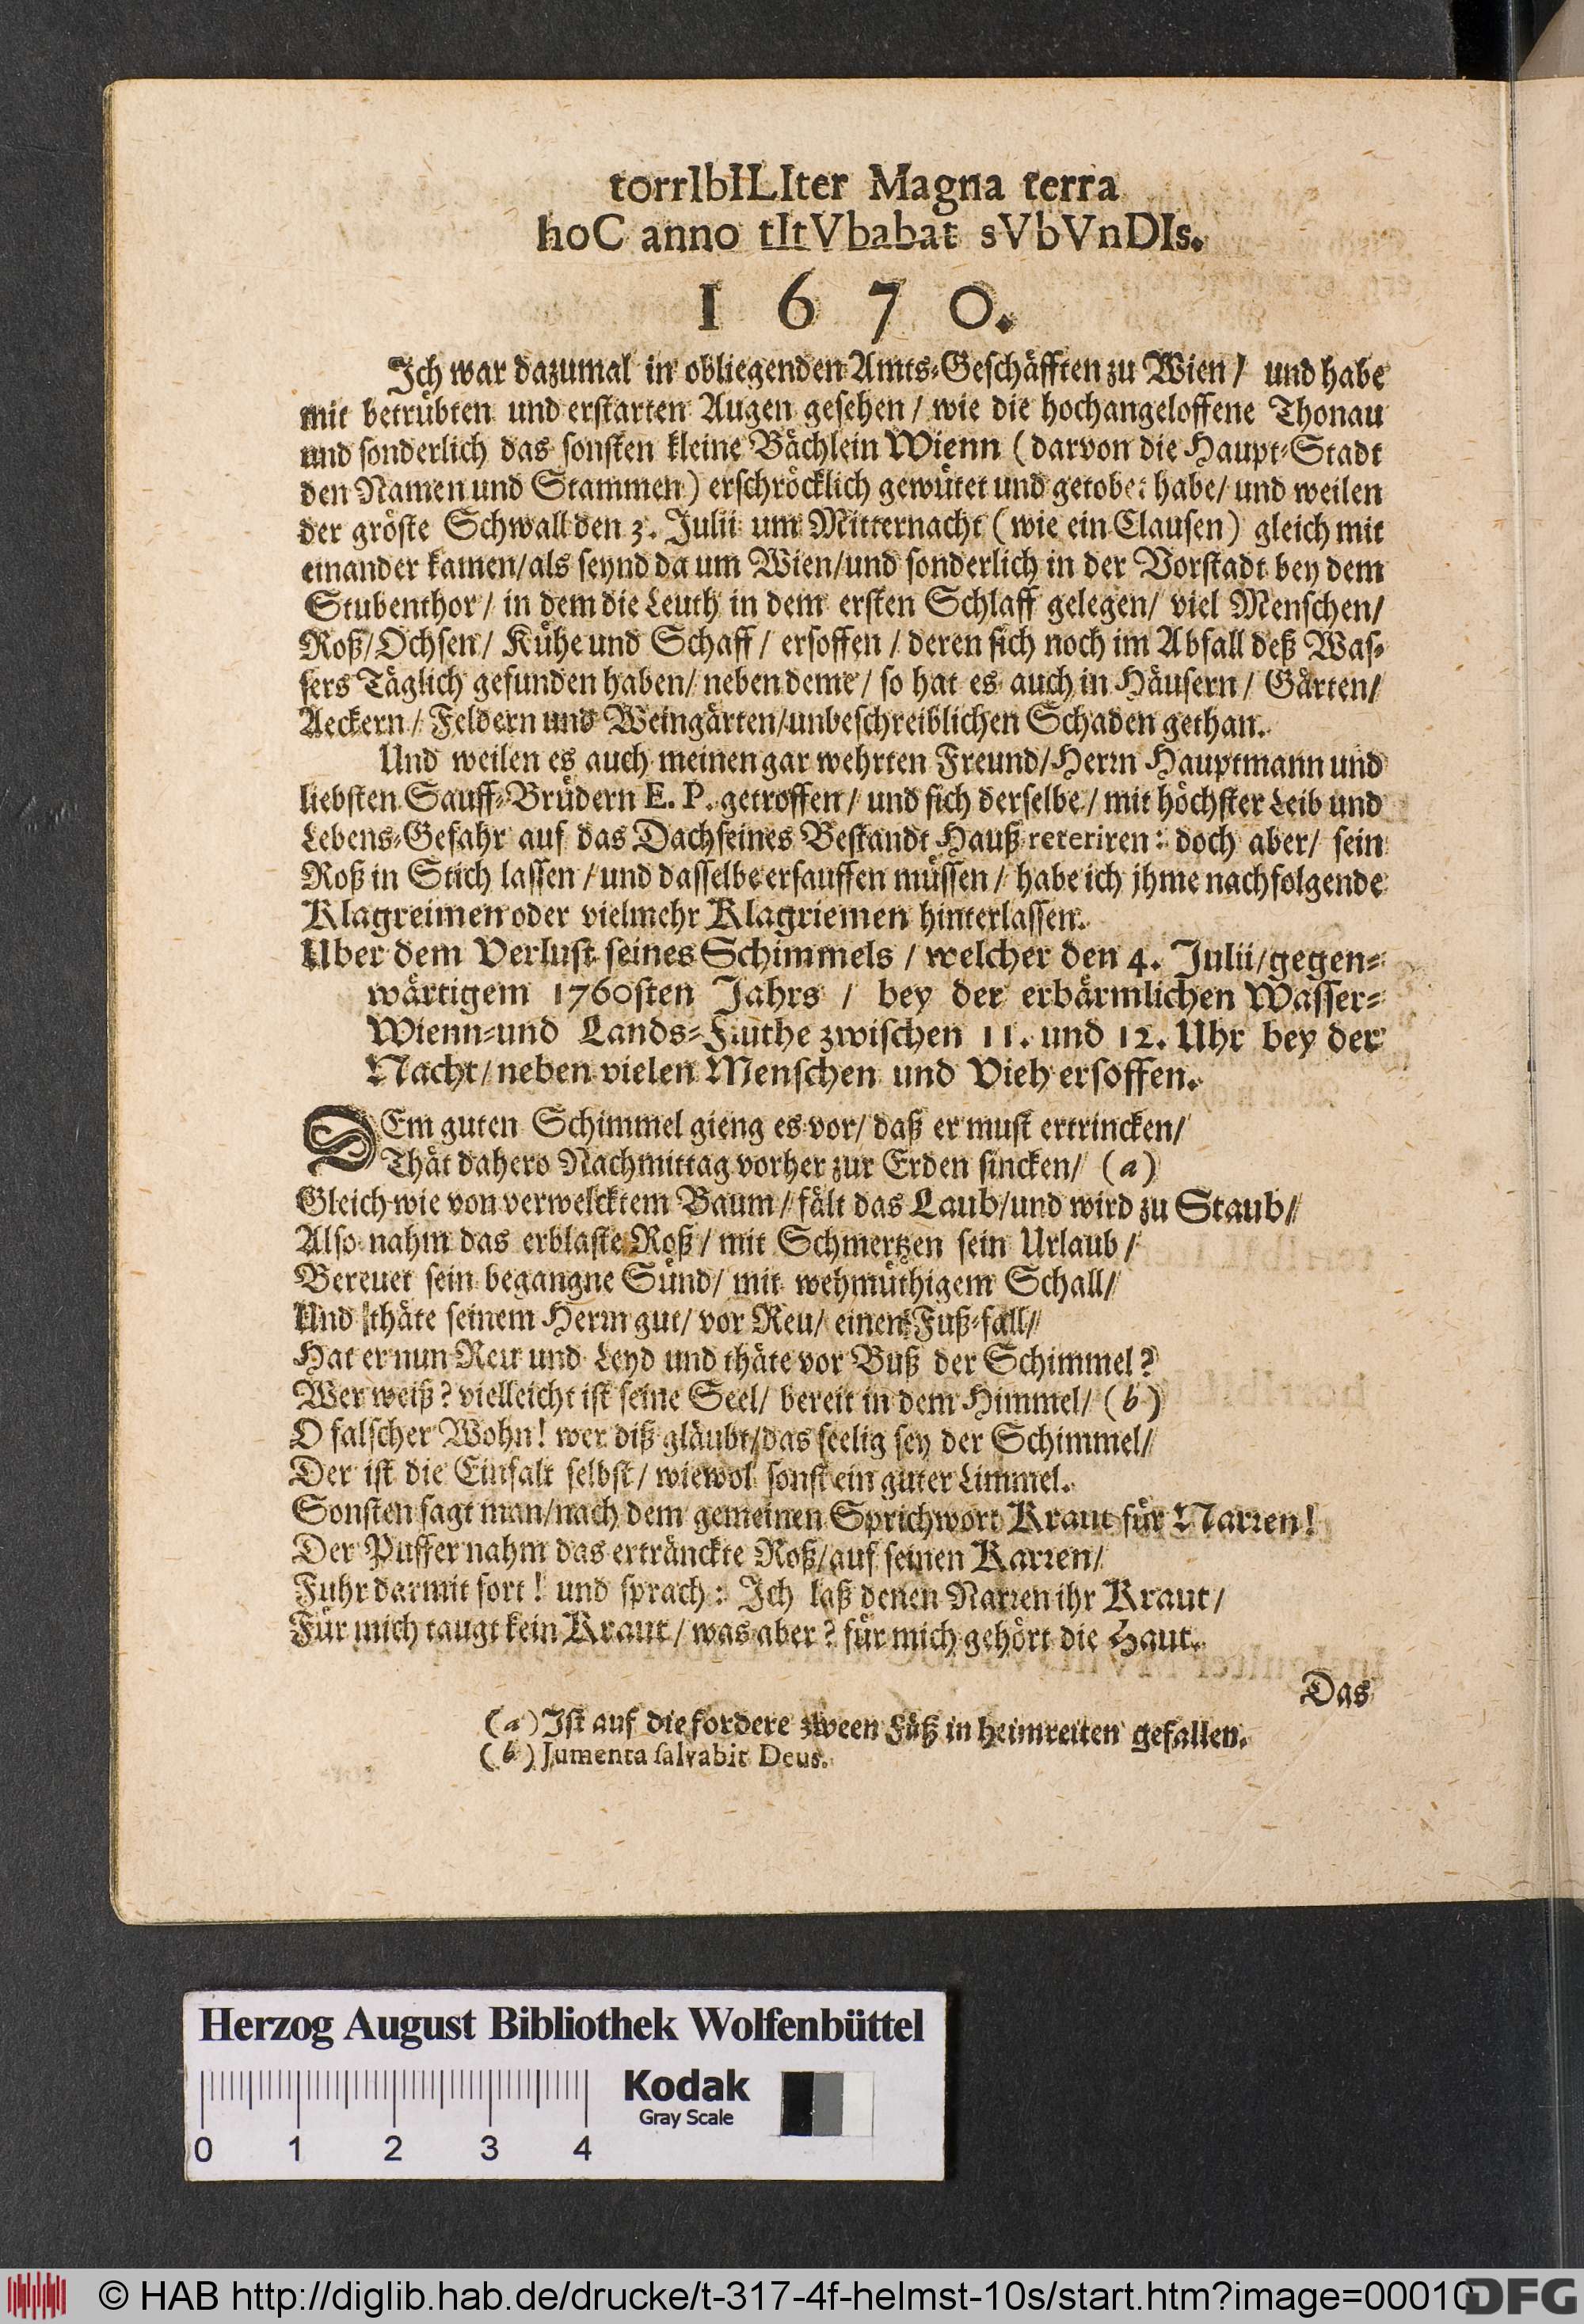 torrIbILIter Magna terra
hoC anno tItVbabat sVbVnDIs.
1670.
Ich war dazumal in obliegenden Amts-Geschäfften zu Wien / und habe
mit betrübten und erstarten Augen gesehen / wie die hochangeloffene Thonau
und sonderlich das sonsten kleine Bächlein Wienn (darvon die Haupt-Stadt
den Namen und Stammen) erschröcklich gewütet und getobet habe/ und weilen
der gröste Schwall den 3. Julii um Mitternacht (wie ein Clausen) gleich mit
einander kamen/als seynd da um Wien/und sonderlich in der Vorstadt bey dem
Stubenthor/ in dem die Leuth in dem ersten Schlaff gelegen/ viel Menschen/
Roß/Ochsen/ Kühe und Schaff/ ersoffen / deren sich noch im Abfall deß Was-
sers Täglich gefunden haben/ neben deme/ so hat es auch in Häusern/ Gärten/
Aeckern/ Feldern und Weingärten/unbeschreiblichen Schaden gethan.
Und weilen es auch meinen gar wehrten Freund/Herrn Hauptmann und
liebsten Sauff-Brüdern E. P. getroffen/ und sich derselbe/ mit höchster Leib und
Lebens-Gefahr auf das Dach seines Bestandt Hauß reteriren: doch aber/ sein
Roß in Stich lassen / und dasselbe ersauffen müssen / habe ich jhme nachfolgende
Klagreimen oder vielmehr Klagriemen hinterlassen.
Uber dem Verlust seines Schimmels / welcher den 4. Julii/gegen-
wärtigem 1760sten Jahrs / bey der erbärmlichen Wasser-
Wienn-und Lands-Fluthe zwischen 11. und 12. Uhr bey der
Nacht/ neben vielen Menschen und Vieh ersoffen.
DEm guten Schimmel gieng es vor/ daß er must ertrincken/
Thät dahero Nachmittag vorher zur Erden sincken/ (a)
Gleich wie von verwelcktem Baum/ fält das Laub/und wird zu Staub/
Also nahm das erblaste Roß/ mit Schmertzen sein Urlaub/
Bereuet sein begangne Sünd/ mit wehmüthigem Schall/
Und thäte seinem Herrn gut/ vor Reu/ einen Fuß-fall/
Hat er nun Reu und Leyd und thäte vor Buß der Schimmel?
Wer weiß? vielleicht ist seine Seel/ bereit in dem Himmel/ (b)
O falscher Wohn! wer diß gläubt/das seelig sey der Schimmel/
Der ist die Einfalt selbst/ wiewol sonst ein guter Limmel.
Sonsten sagt man/nach dem gemeinen Sprichwort Kraut für Narren!
Der Puffer nahm das ertränckte Roß/auf seinen Karren/
Fuhr darmit fort! und sprach: Ich laß denen Narren ihr Kraut/
Für mich taugt kein Kraut/ was aber? für mich gehört die Haut.
Das
(a) Ist auf die fordere zween Füß in heimreiten gefallen.
(b) Jumenta salvabit Deus.
Herzog August Bibliothek Wolfenbüttel
Kodak
Gray Scale
0 1 2 3 4
© HAB http://diglib.hab.de/drucke/t-317-4f-helmst-10s/start.htm?image=00010
DFG